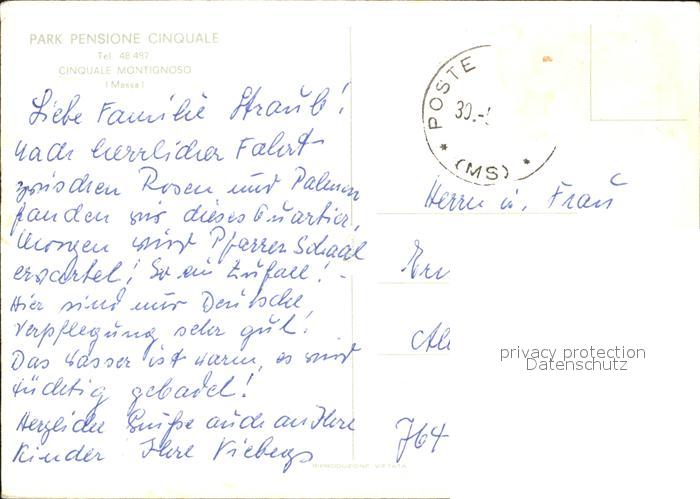 PARK PENSIONE CINQUALE
Tel. 48 497
CINQUALE MONTIGNOSO
(Massa)
Liebe Familie Straub!
Nach herrlicher Fahrt
zwischen Rosen und Palmen
fanden wir dieses Quartier,
Morgen wird Pfarrer Schaal
erwartet! So ein Zufall! -
Hier sind nur Deutsche
Verpflegung sehr gut!
Das Wasser ist warm, es wird
tüchtig gebadet!
Herzliche Grüße auch an Ihre
Kinder Ihre Viebergs
POSTE
30.-
* (MS) *
Herrn u. Frau
Erv
Al
764
privacy protection
Datenschutz
RIPRODUZIONE VIETATA